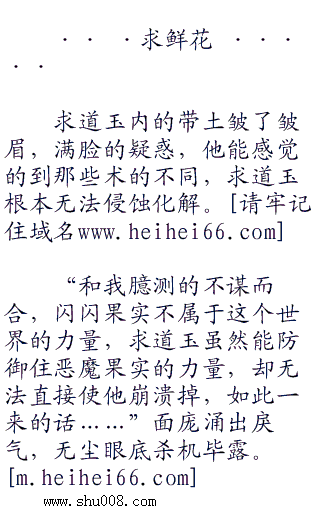 · · · ·求鲜花 · · ·
· ·
求道玉内的带土皱了皱
眉，满脸的疑惑，他能感觉
的到那些术的不同，求道玉
根本无法侵蚀化解。[请牢记
住域名www.heihei66.com]
“和我臆测的不谋而
合，闪闪果实不属于这个世
界的力量，求道玉虽然能防
御住恶魔果实的力量，却无
法直接使他崩溃掉，如此一
来的话……”面庞涌出戾
气，无尘眼底杀机毕露。
[m.heihei66.com]
www.shu008.com